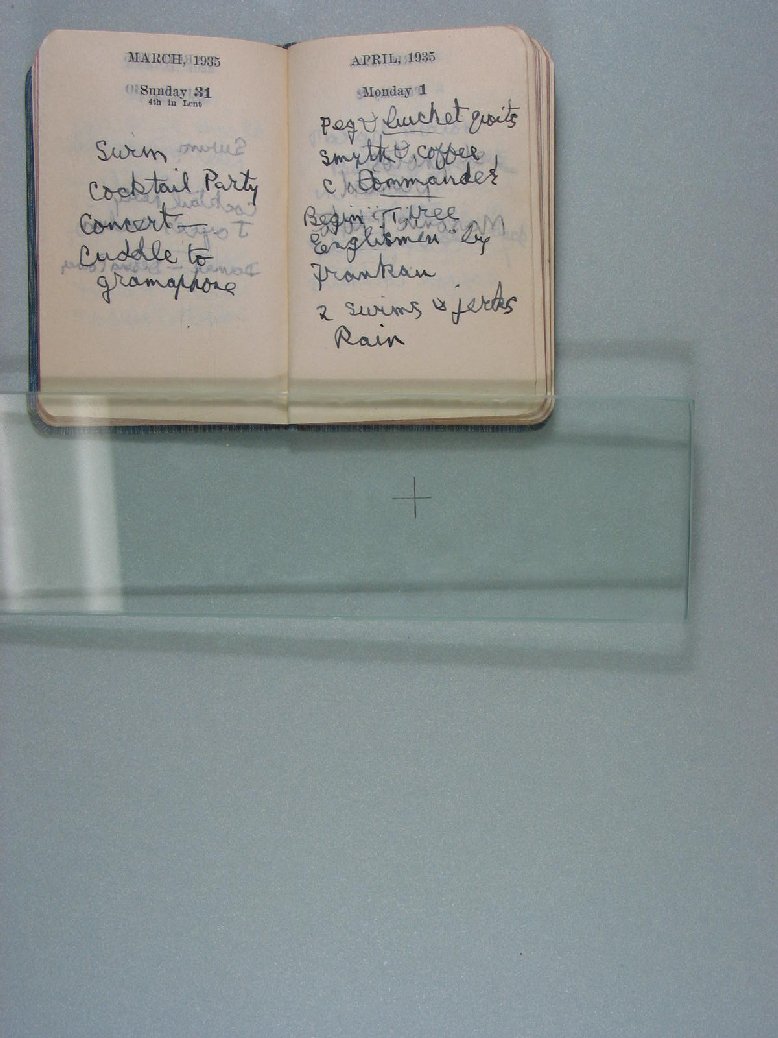 MARCH, 1935
Sunday 31
4th in Lent
Swim
Cocktail Party
Concert —
Cuddle to
gramophone
APRIL, 1935
Monday 1
Peg & bucket quoits
Smyth & coffee
c Commander
Begin "Three
Englismen" by
Frankau
2 swims & jerks
Rain